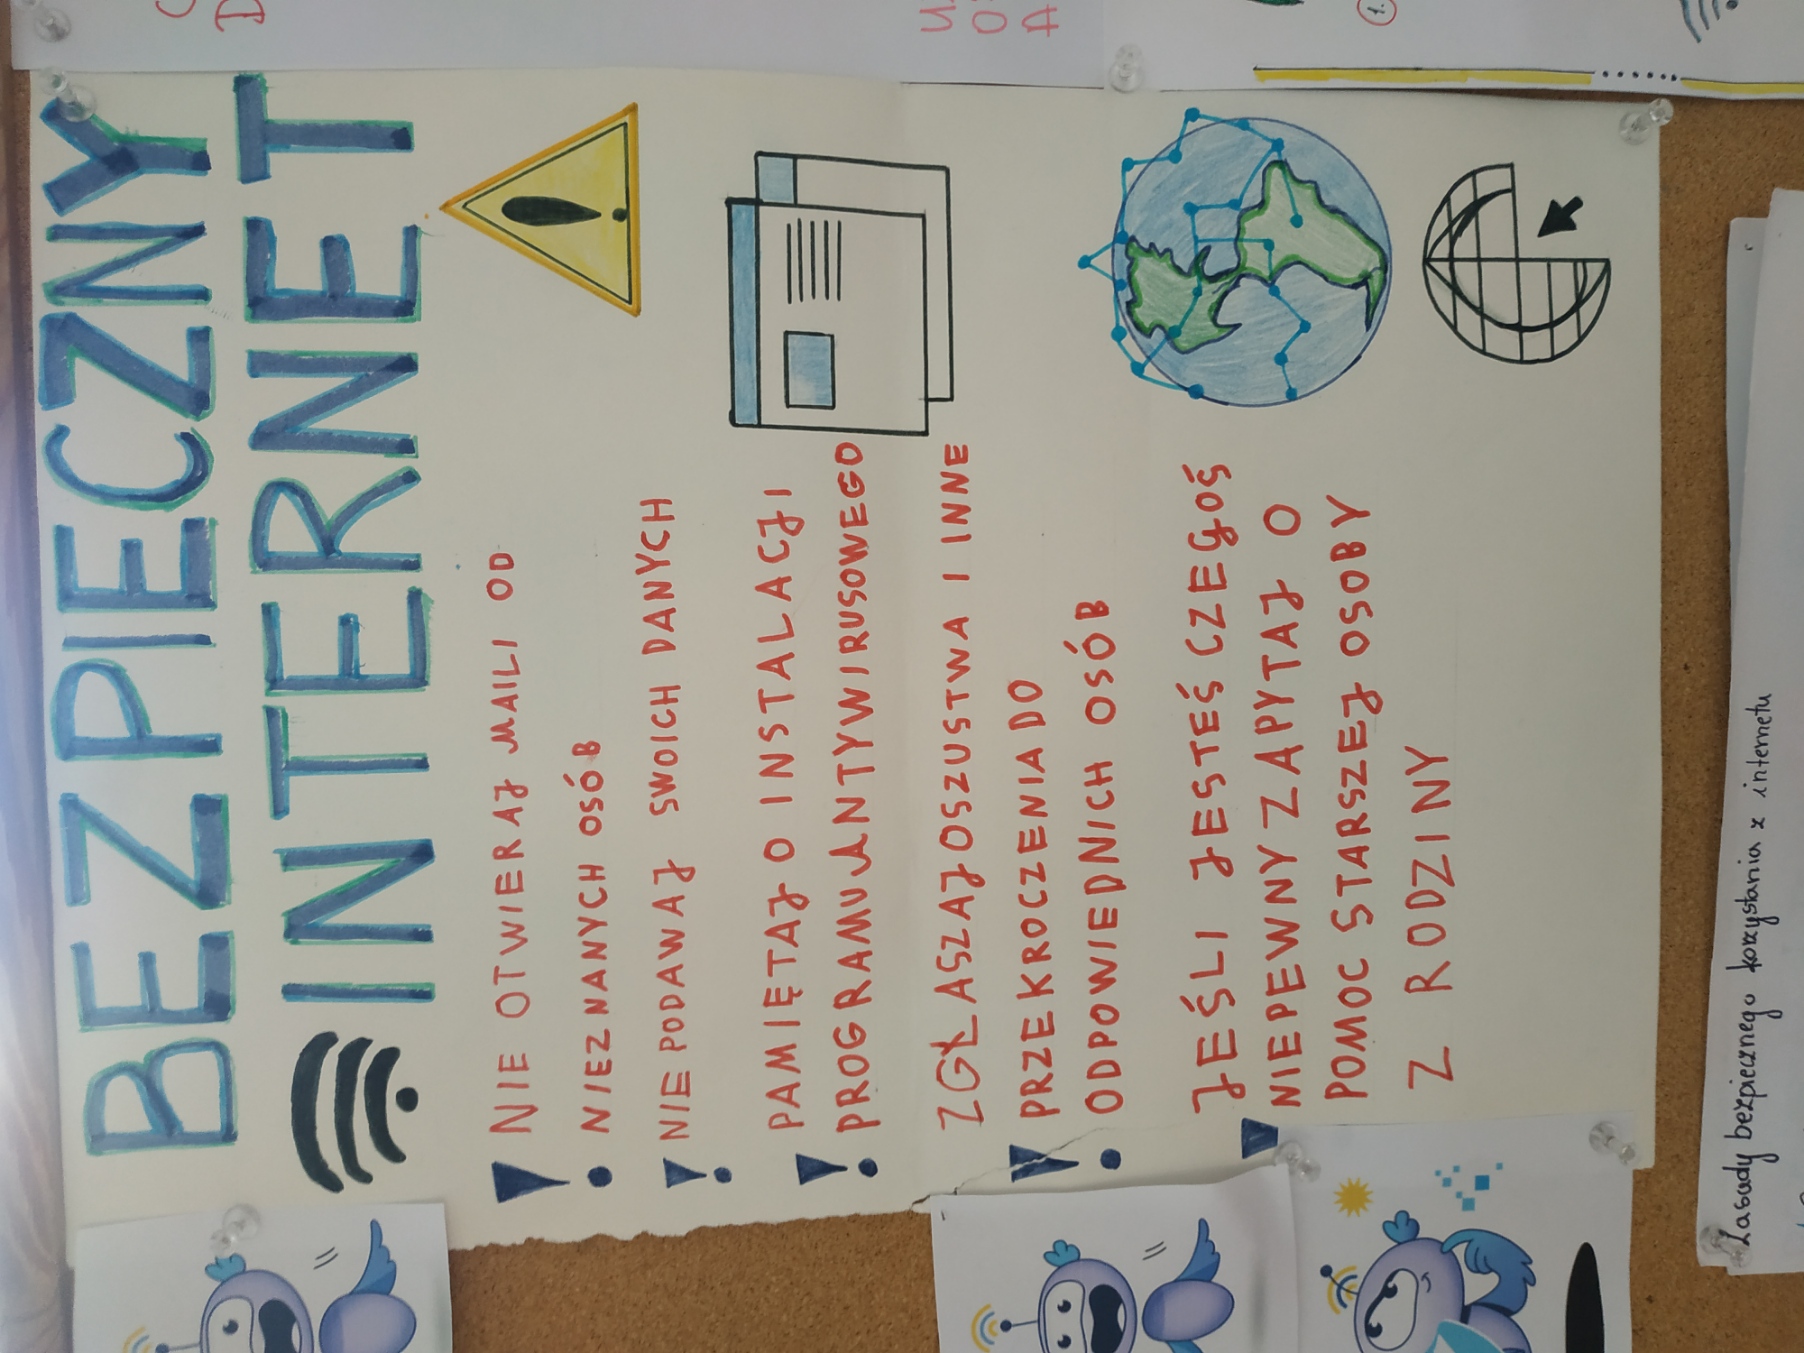 BEZPIECZNY
INTERNET
! NIE OTWIERAJ MAILI OD
NIEZNANYCH OSÓB
! NIE PODAWAJ SWOICH DANYCH
! PAMIĘTAJ O INSTALACJI
PROGRAMU ANTYWIRUSOWEGO
! ZGŁASZAJ OSZUSTWA I INNE
PRZEKROCZENIA DO
ODPOWIEDNICH OSÓB
JEŚLI JESTEŚ CZEGOŚ
NIEPEWNY ZAPYTAJ O
POMOC STARSZEJ OSOBY
Z RODZINY
Zasady bezpiecznego korzystania z internetu
1.